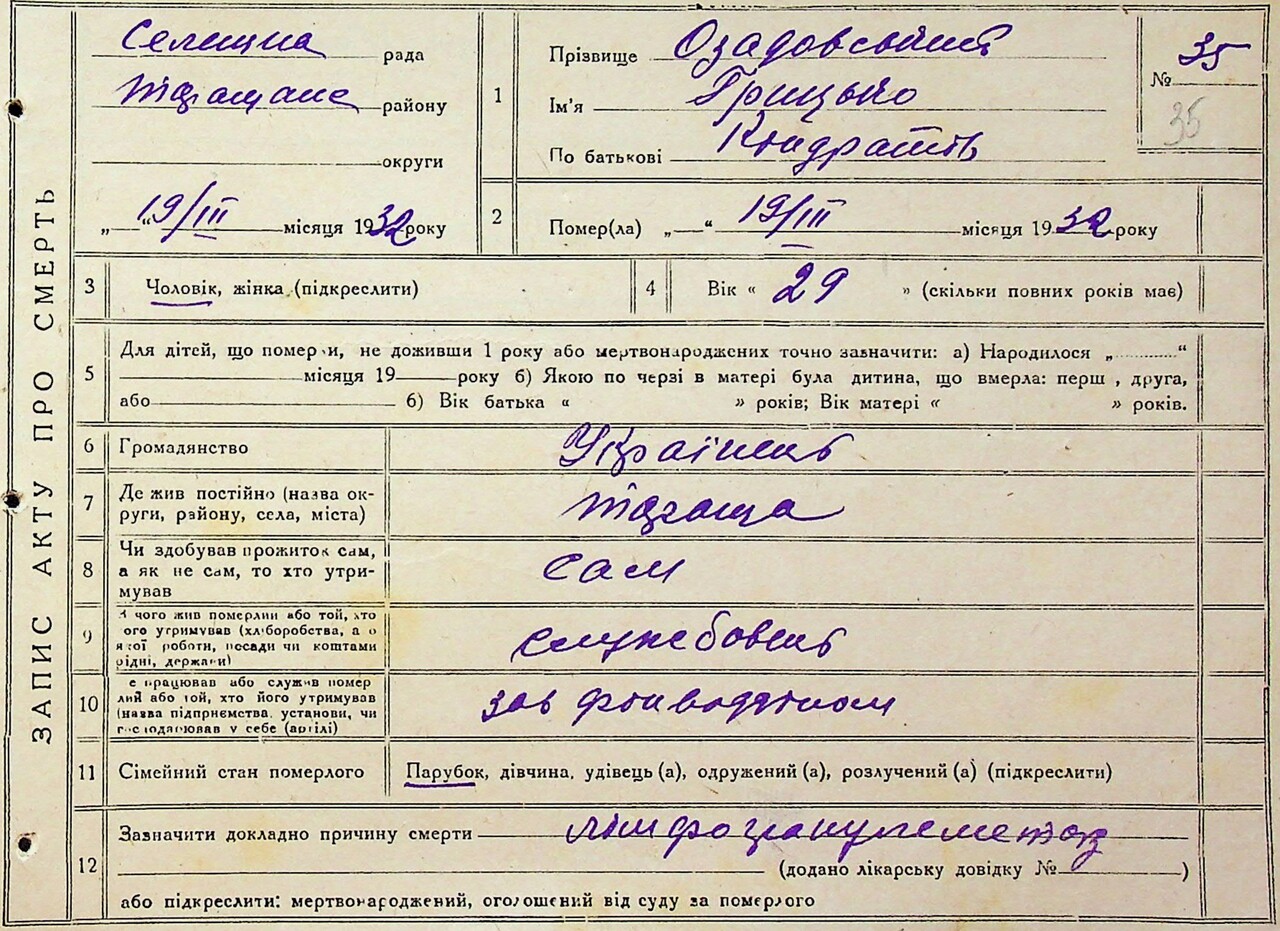 ЗАПИС АКТУ ПРО СМЕРТЬ
Селищна рада
району
округи
„—“ 19/III місяця 1932 року
1
Прізвище Озадовський
Ім'я Грицько
По батькові Кіндратів
№ 35
35
2 Помер(ла) „—“ 19/III місяця 1932 року
3 Чоловік, жінка (підкреслити)
4 Вік « 29 » (скільки повних років має)
5
Для дітей, що померли, не доживши 1 року або мертвонароджених точно зазначити: а) Народилося „..........“
місяця 19 року б) Якою по черзі в матері була дитина, що вмерла: перш , друга,
або б) Вік батька « » років; Вік матері « » років.
6 Громадянство Українець
7 Де жив постійно (назва ок-
руги, району, села, міста) Тараща
8 Чи здобував прожиток сам,
а як не сам, то хто утри-
мував сам
9 чого жив померлий або той, хто
його утримував (хліборобства, а о
якої роботи, посади чи коштами
рідні, держави) службовець
10 е працював або служив помер
лий або той, хто його утримував
(назва підприємства, установи, чи
господарював у себе (артілі) зав фінвідділом
11 Сімейний стан померлого Парубок, дівчина, удівець (а), одружений (а), розлучений (а) (підкреслити)
12
Зазначити докладно причину смерти лімфогранулематоз
(додано лікарську довідку № )
або підкреслити: мертвонароджений, оголошений від суду за померлого